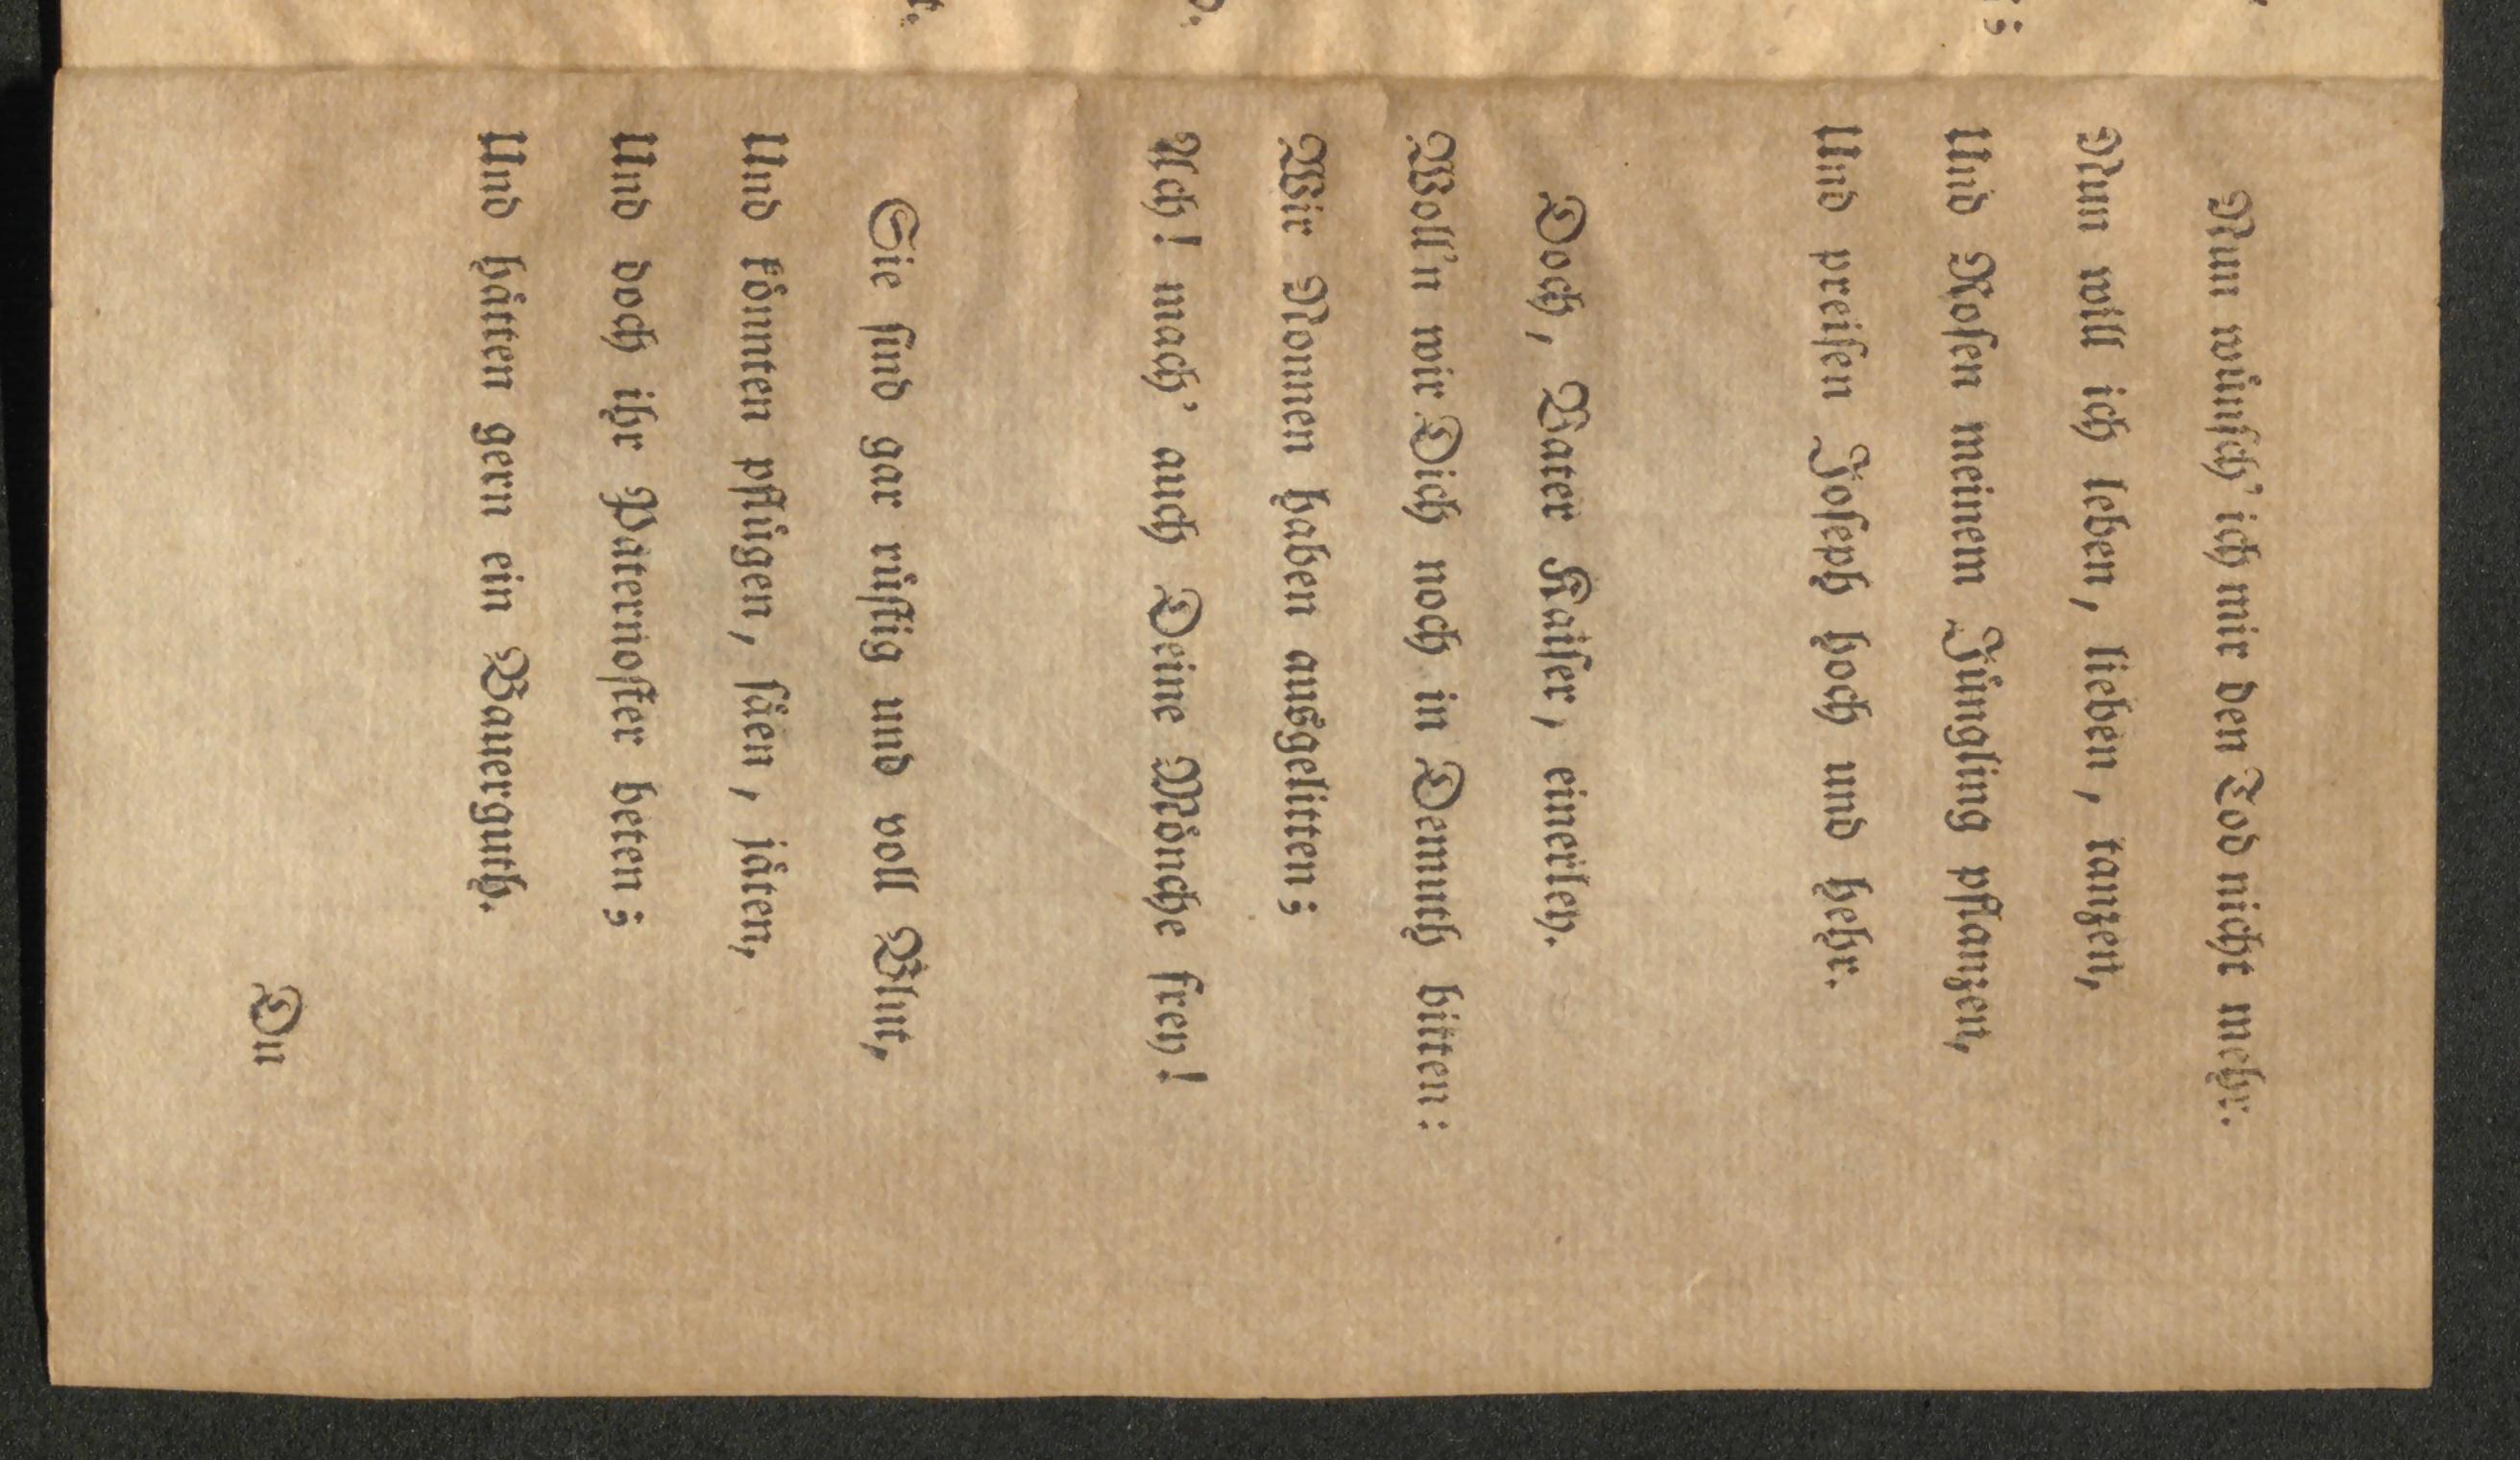 Nun wünsch' ich mir den Tod nicht mehr.
Nun will ich leben, lieben, tanzen,
Und Rosen meinem Jüngling pflanzen,
Und preisen Joseph hoch und hehr.
Doch, Vater Kaiser, einerley.
Woll'n wir Dich noch in Demuth bitten:
Wir Nonnen haben ausgelitten;
Ach! mach' auch Deine Mönche frey!
Sie sind gar rüstig und voll Blut,
Und könnten pflügen, säen, jäten,
Und doch ihr Paternoster beten;
Und hätten gern ein Bauerguth.
Du